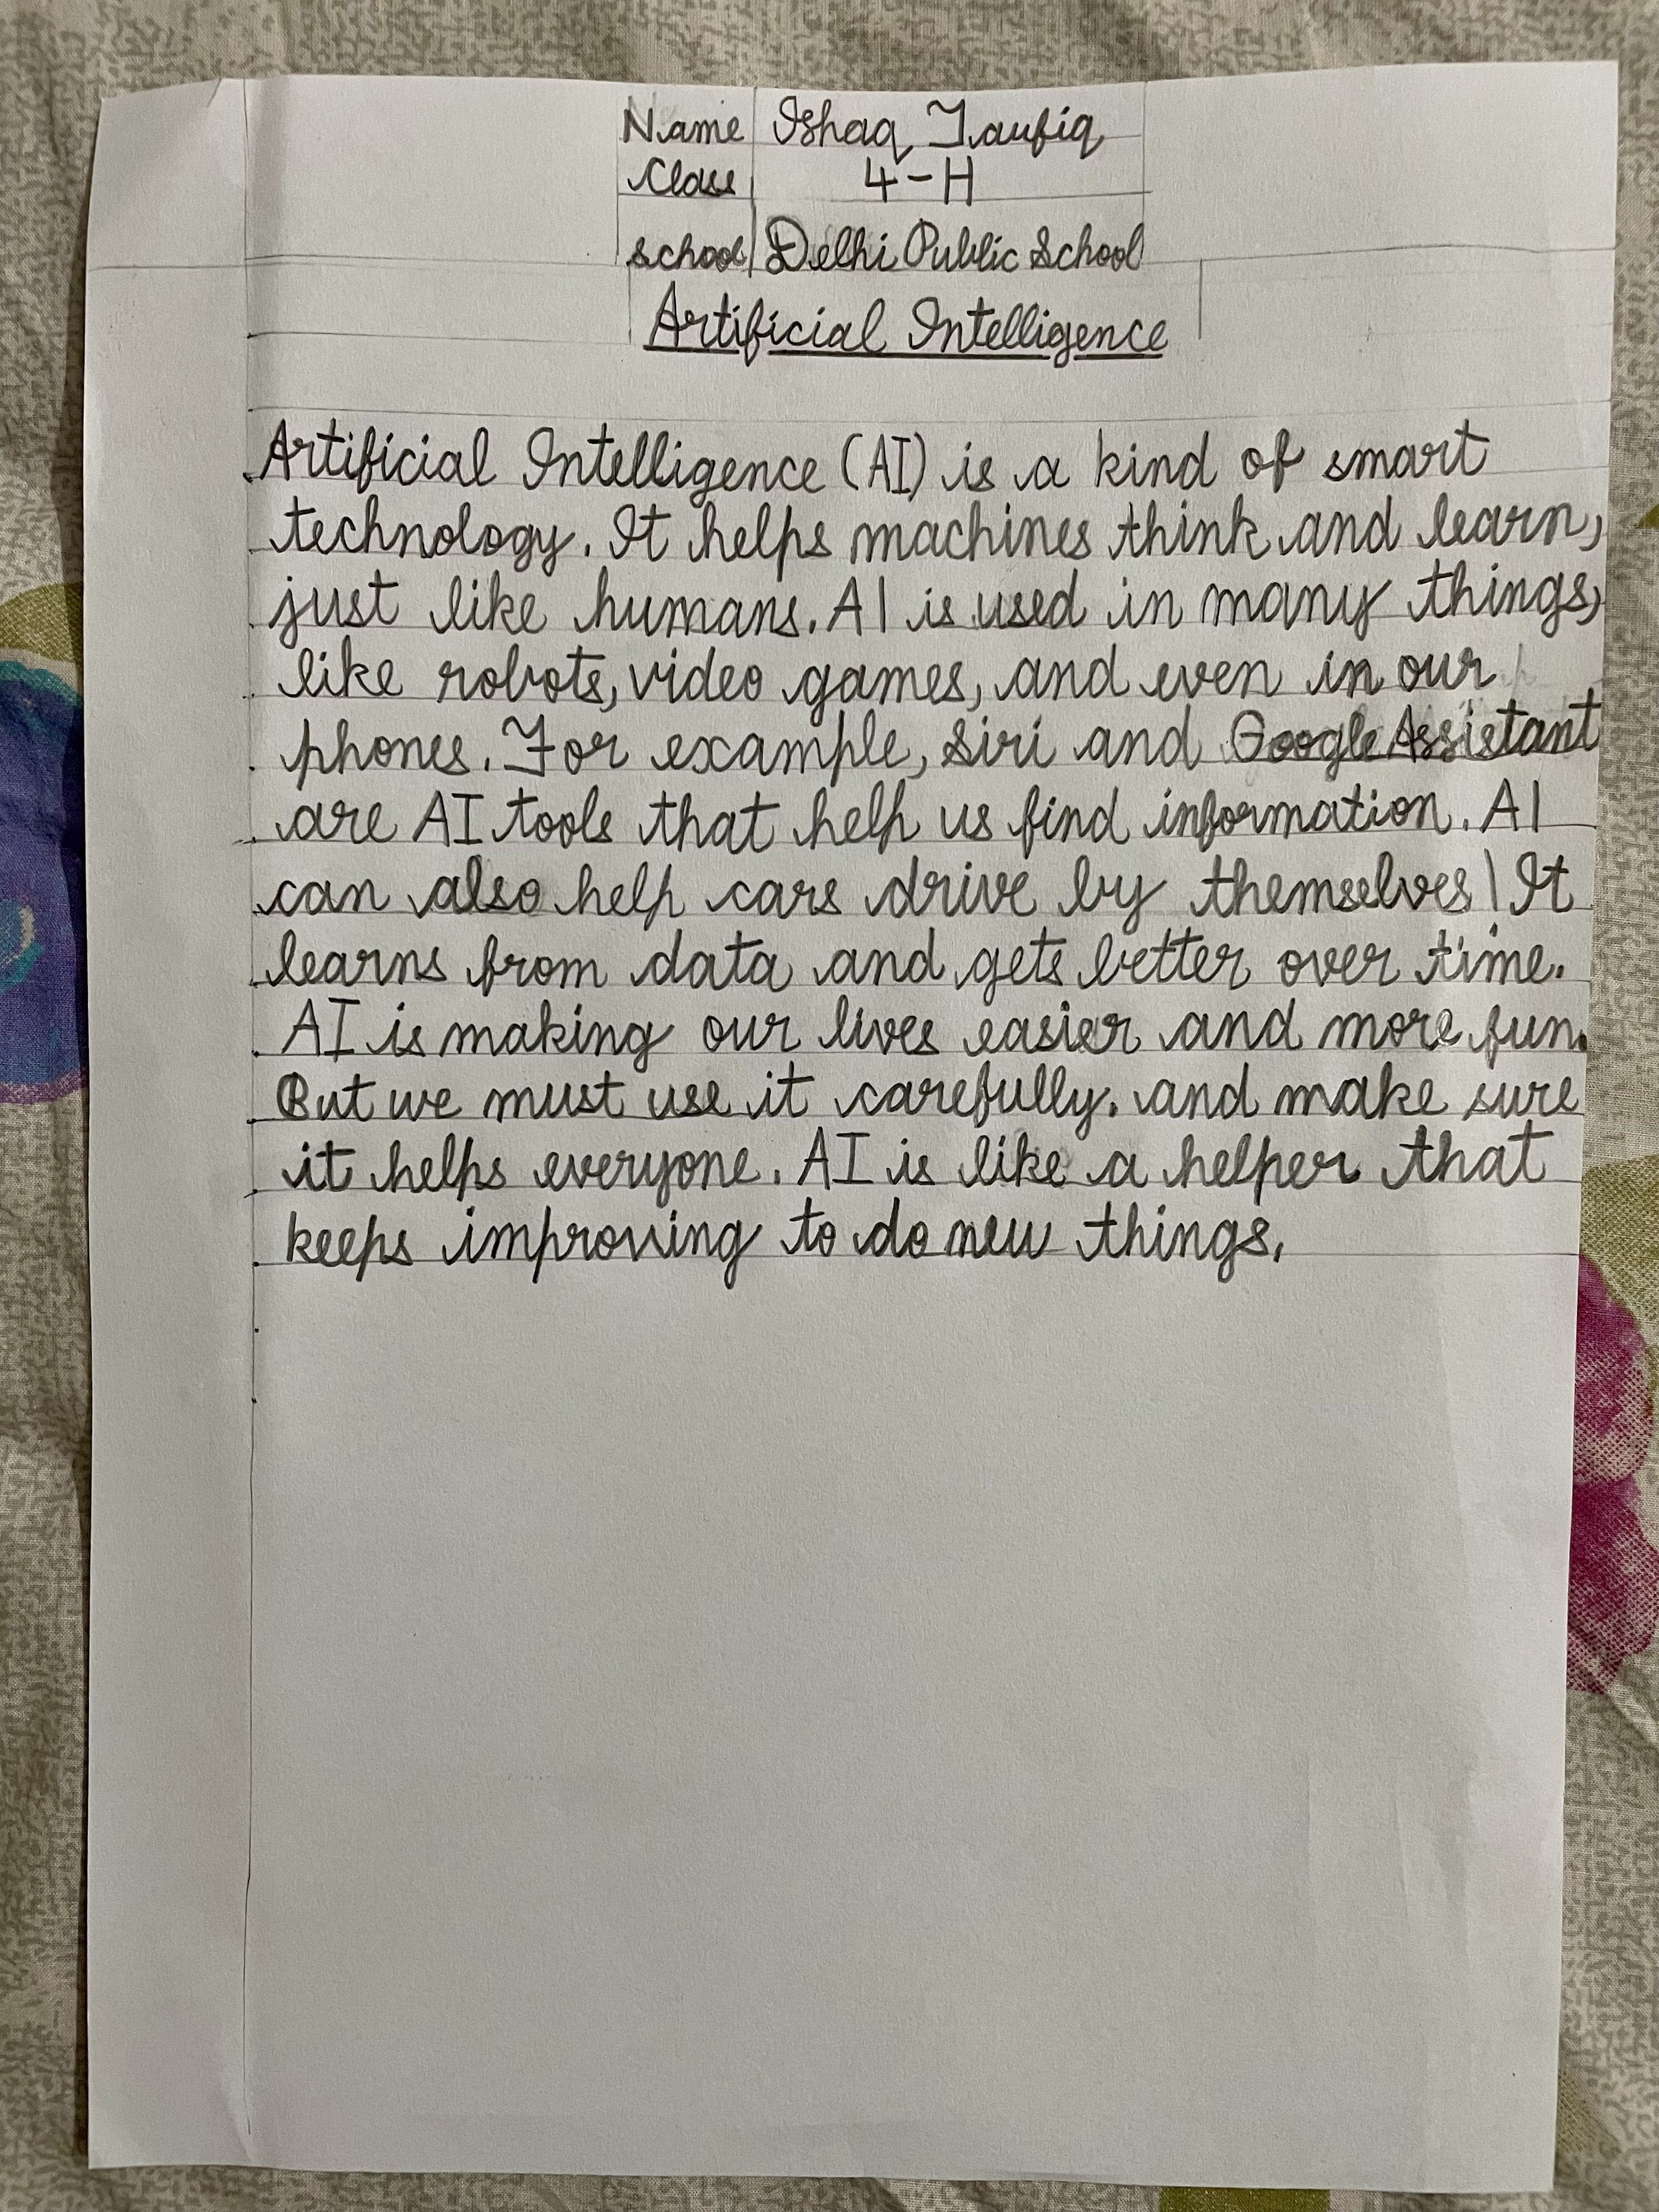 Name Ishaq Taufiq
Class 4-H
School Delhi Public School
Artificial Intelligence
Artificial Intelligence (AI) is a kind of smart
technology. It helps machines think and learn,
just like humans. AI is used in many things,
like robots, video games, and even in our
phones. For example, Siri and Google Assistant
are AI tools that help us find information. AI
can also help cars drive by themselves! It
learns from data and gets better over time.
AI is making our lives easier and more fun.
But we must use it carefully. and make sure
it helps everyone. AI is like a helper that
keeps improving to do new things.